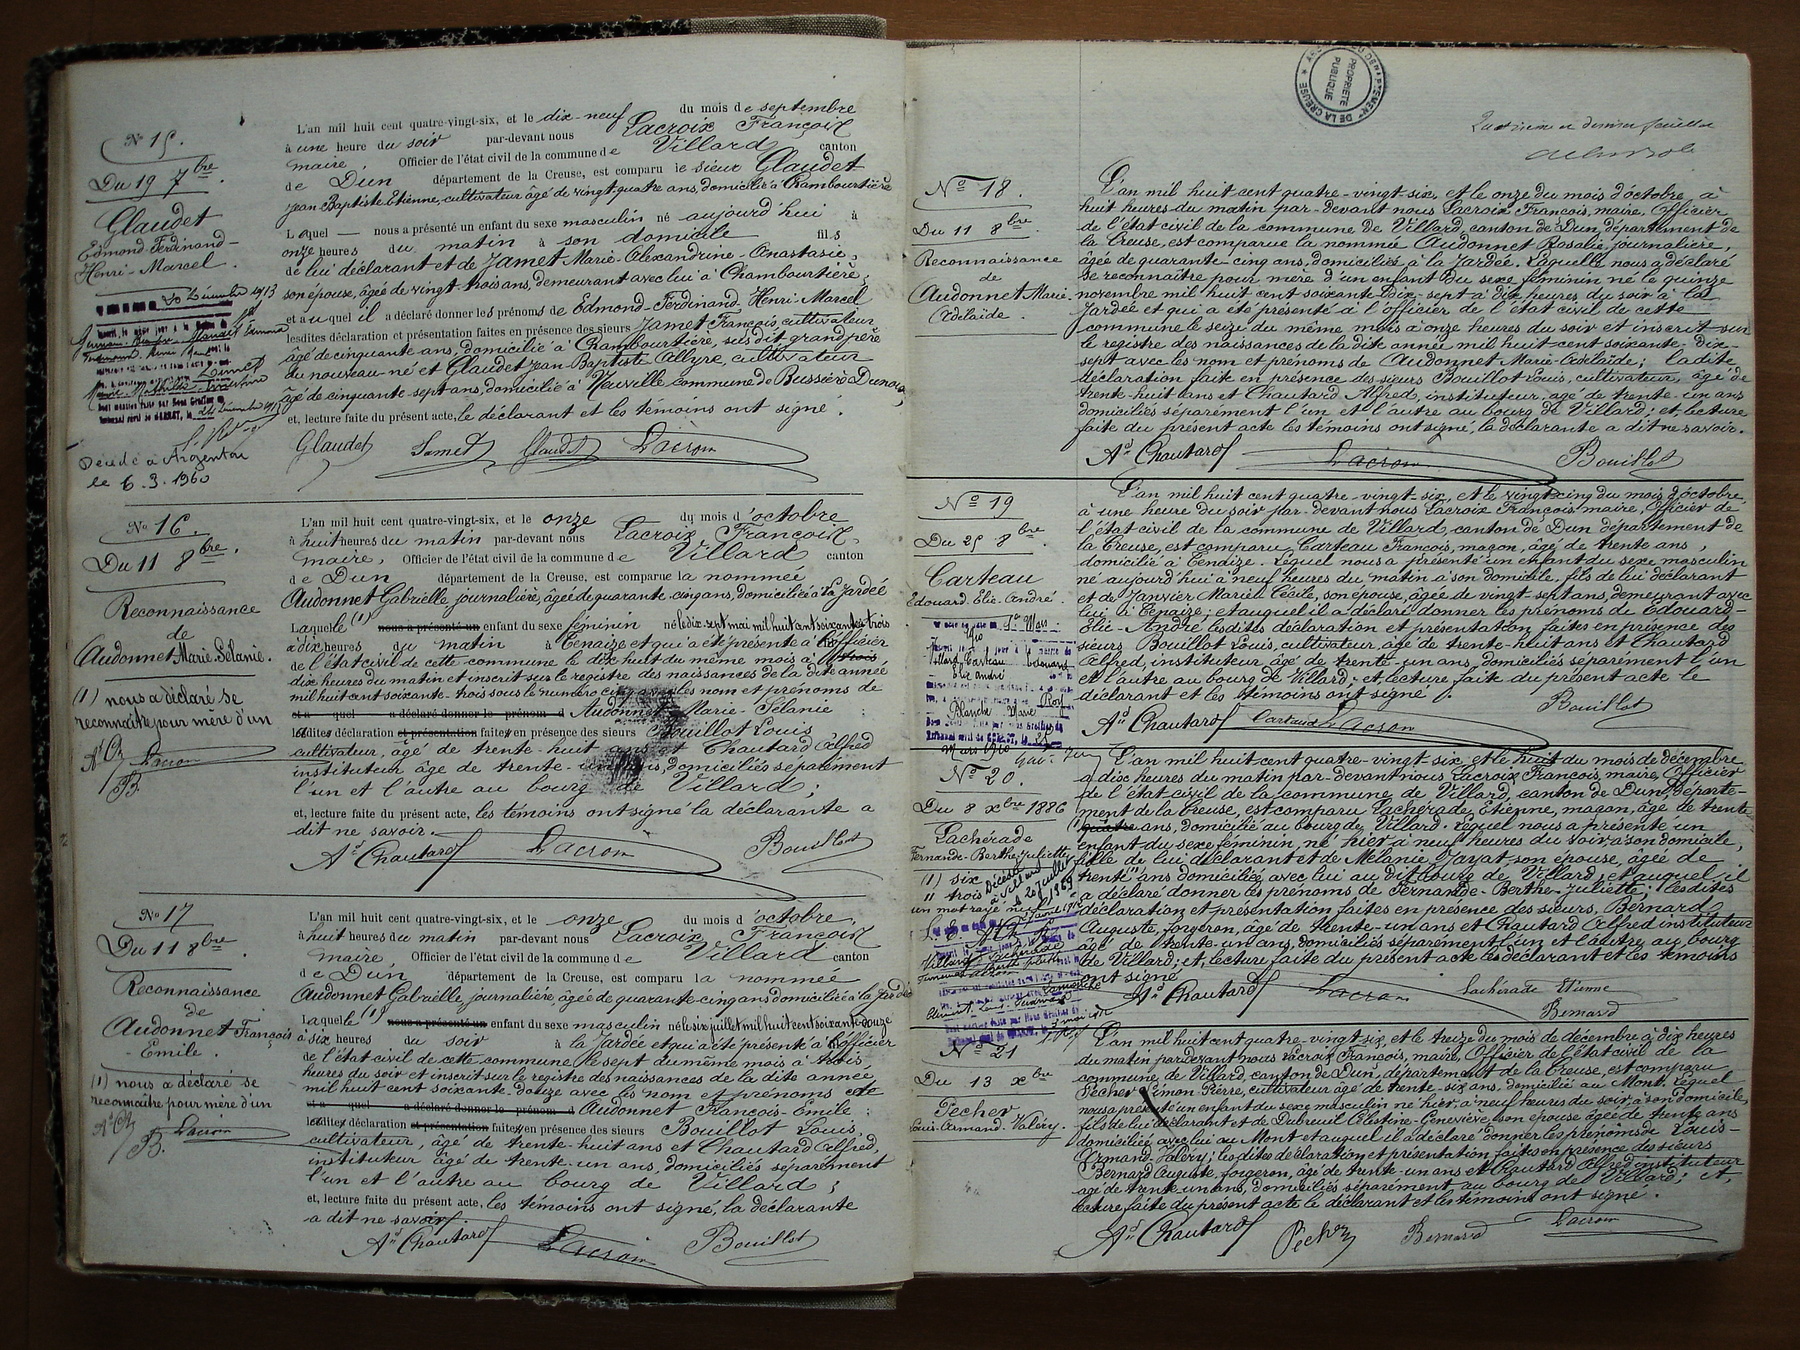 N° 15.
Du 19 7bre.
Glaudet
Edmond-Ferdinand-
Henri-Marcel.
30 Décembre 1913
Décédé à Argenton
le 6.3.1960
L'an mil huit cent quatre-vingt-six, et le dix-neuf du mois de septembre
à une heure du soir par-devant nous Lacroix François
maire, Officier de l'état civil de la commune de Villard canton
de Dun département de la Creuse, est comparu le sieur Glaudet
Jean Baptiste Etienne, cultivateur âgé de vingt quatre ans, domicilié à Chambourtière
Lequel — nous a présenté un enfant du sexe masculin né aujourd'hui à
onze heures du matin à son domicile fils
de lui déclarant et de Jamet Marie-Alexandrine-Anastasie,
son épouse, âgée de vingt trois ans, demeurant avec lui à Chambourtière,
et auquel il a déclaré donner les prénoms de Edmond-Ferdinand-Henri-Marcel
lesdites déclaration et présentation faites en présence des sieurs Jamet François, cultivateur
âgé de cinquante ans, domicilié à Chambourtière, susdit grand père
du nouveau-né et Glaudet Jean Baptiste Allyre, cultivateur
âgé de cinquante-sept ans, domicilié à Neuville commune de Bussière Dunoise
et, lecture faite du présent acte, le déclarant et les témoins ont signé.
Glaudet Jamet Glaudet Lacroix
N° 16.
Du 11 8bre.
Reconnaissance
de
Audonnet Marie-Sélanie.
(1) nous a déclaré se
reconnaître pour mère d'un
Ad Ch Lacroix
B
L'an mil huit cent quatre-vingt-six, et le onze du mois d'octobre
à huit heures du matin par-devant nous Lacroix François
maire, Officier de l'état civil de la commune de Villard canton
de Dun département de la Creuse, est comparue la nommée
Audonnet Gabrielle, journalière, âgée de quarante cinq ans, domiciliée à la Jardée
Laquelle (1) nous a présenté un enfant du sexe féminin né le dix-sept mai mil huit cent soixante-trois
à dix heures du matin à Cenaize et qui a été présenté à l'officier
de l'état civil de cette commune le dix huit du même mois à
dix heures du matin et inscrit sur le registre des naissances de la dite année
mil huit cent soixante-trois sous le numéro les nom et prénoms de
et a quel a déclaré donner le prénom d Audonnet Marie-Sélanie
lesdites déclaration et présentation faites en présence des sieurs Bouillot Louis
cultivateur, âgé de trente-huit ans et Chautard Alfred
instituteur âgé de trente- ans, domiciliés séparément
l'un et l'autre au bourg de Villard;
et, lecture faite du présent acte, les témoins ont signé la déclarante a
dit ne savoir.
Ad Chautard Lacroix Bouillot
N° 17
Du 11 8bre.
Reconnaissance
de
Audonnet François
- Emile.
(1) nous a déclaré se
reconnaître pour mère d'un
Ad Ch Lacroix
B.
L'an mil huit cent quatre-vingt-six, et le onze du mois d'octobre,
à huit heures du matin par-devant nous Lacroix François
maire, Officier de l'état civil de la commune de Villard canton
de Dun département de la Creuse, est comparu la nommée
Audonnet Gabrielle, journalière, âgée de quarante-cinq ans domiciliée à la Jardée
Laquelle (1) nous a présenté un enfant du sexe masculin né le six juillet mil huit cent soixante-douze
à six heures du soir à la Jardée et qui a été présenté à l'officier
de l'état civil de cette commune le sept du même mois à trois
heures du soir et inscrit sur le registre des naissances de la dite année
mil huit cent soixante-douze avec les nom et prénoms de
et a quel a déclaré donner le prénom d Audonnet François-Emile;
lesdites déclaration et présentation faites en présence des sieurs Bouillot Louis,
cultivateur, âgé de trente-huit ans et Chautard Alfred,
instituteur âgé de trente-un ans, domiciliés séparément
l'un et l'autre au bourg de Villard;
et, lecture faite du présent acte, les témoins ont signé, la déclarante
a dit ne savoir.
Ad Chautard Lacroix Bouillot
DE LA CREUSE
PROPRIÉTÉ
PUBLIQUE
dernier feuillet
N° 18.
Du 11 8bre.
Reconnaissance
de
Audonnet Marie-
Adelaïde.
L'an mil huit cent quatre-vingt-six, et le onze du mois d'octobre à
huit heures du matin par-devant nous Lacroix François, maire, Officier
de l'état civil de la commune de Villard, canton de Dun, département de
la Creuse, est comparue la nommée Audonnet Rosalie, journalière,
âgée de quarante-cinq ans, domiciliée à la Jardée. Laquelle nous a déclaré
se reconnaître pour mère d'un enfant du sexe féminin né le quinze
novembre mil huit cent soixante-dix-sept à dix heures du soir à la
Jardée et qui a été présenté à l'officier de l'état civil de cette
commune le seize du même mois à onze heures du soir et inscrit sur
le registre des naissances de la dite année mil huit cent soixante-dix-
sept avec les nom et prénoms de Audonnet Marie-Adelaïde; la dite
déclaration faite en présence des sieurs Bouillot Louis, cultivateur, âgé de
trente-huit ans et Chautard Alfred, instituteur, âgé de trente-un ans
domiciliés séparément l'un et l'autre au bourg de Villard; et, lecture
faite du présent acte les témoins ont signé, la déclarante a dit ne savoir.
Ad Chautard Lacroix Bouillot
N° 19
Du 25 8bre.
Carteau
Edouard-Elie-André.
L'an mil huit cent quatre-vingt-six, et le vingt cinq du mois d'octobre
à une heure du soir par-devant nous Lacroix François maire, Officier de
l'état civil de la commune de Villard, canton de Dun département de
la Creuse, est comparu Carteau François, maçon, âgé de trente ans,
domicilié à Cenaize. Lequel nous a présenté un enfant du sexe masculin
né aujourd'hui à neuf heures du matin à son domicile, fils de lui déclarant
et de Janvier Marie Cécile, son épouse, âgée de vingt-sept ans, demeurant avec
lui à Cenaize; et auquel il a déclaré donner les prénoms de Edouard-
Elie-André, lesdites déclaration et présentation faites en présence des
sieurs Bouillot Louis, cultivateur, âgé de trente-huit ans et Chautard
Alfred, instituteur, âgé de trente-un ans, domiciliés séparément l'un
et l'autre au bourg de Villard; et, lecture faite du présent acte le
déclarant et les témoins ont signé.
Ad Chautard Carteau Lacroix Bouillot
N° 20.
Du 8 xbre 1886
Lachérade
Fernande-Berthe-Juliette
(1) six
11 trois
un mot rayé
Décédée
à Villard
le 20 juillet
1969
L'an mil huit cent quatre-vingt-six et le huit du mois de décembre
à dix heures du matin par-devant nous Lacroix François, maire, Officier
de l'état civil de la commune de Villard, canton de Dun, départe-
ment de la Creuse, est comparu Lachérade Étienne, maçon, âgé de trente
(1) quatre ans, domicilié au bourg de Villard. Lequel nous a présenté un
enfant du sexe féminin, né hier à neuf heures du soir à son domicile,
fille de lui déclarant et de Mélanie son épouse, âgée de
trente " ans domiciliée avec lui au dit bourg de Villard; et auquel il
a déclaré donner les prénoms de Fernande-Berthe-Juliette; lesdites
déclaration et présentation faites en présence des sieurs, Bernard
Auguste, forgeron, âgé de trente-un ans et Chautard Alfred instituteur
âgé de trente-un ans, domiciliés séparément l'un et l'autre au bourg
de Villard; et, lecture faite du présent acte les déclarant et les témoins
ont signé
Ad Chautard Lacroix Lachérade Etienne
Bernard
N° 21
Du 13 xbre
Pécher
Louis-Armand-Valéry.
L'an mil huit cent quatre-vingt-six, et le treize du mois de décembre à dix heures
du matin par devant nous Lacroix François, maire, Officier de l'état civil de la
commune de Villard, canton de Dun, département de la Creuse, est comparu
Pécher Simon Pierre, cultivateur âgé de trente-six ans, domicilié au Mont. Lequel
nous a présenté un enfant du sexe masculin né hier à neuf heures du soir à son domicile,
fils de lui déclarant et de Dubreuil Célestine-Geneviève, son épouse âgée de trente ans
domiciliée avec lui au Mont et auquel il a déclaré donner les prénoms de Louis-
Armand-Valéry; les dites déclaration et présentation faites en présence des sieurs
Bernard Auguste, forgeron, âgé de trente-un ans et Chautard Alfred instituteur
âgé de trente-un ans, domiciliés séparément au bourg de Villard; et,
lecture faite du présent acte le déclarant et les témoins ont signé.
Ad Chautard Pécher Bernard Lacroix